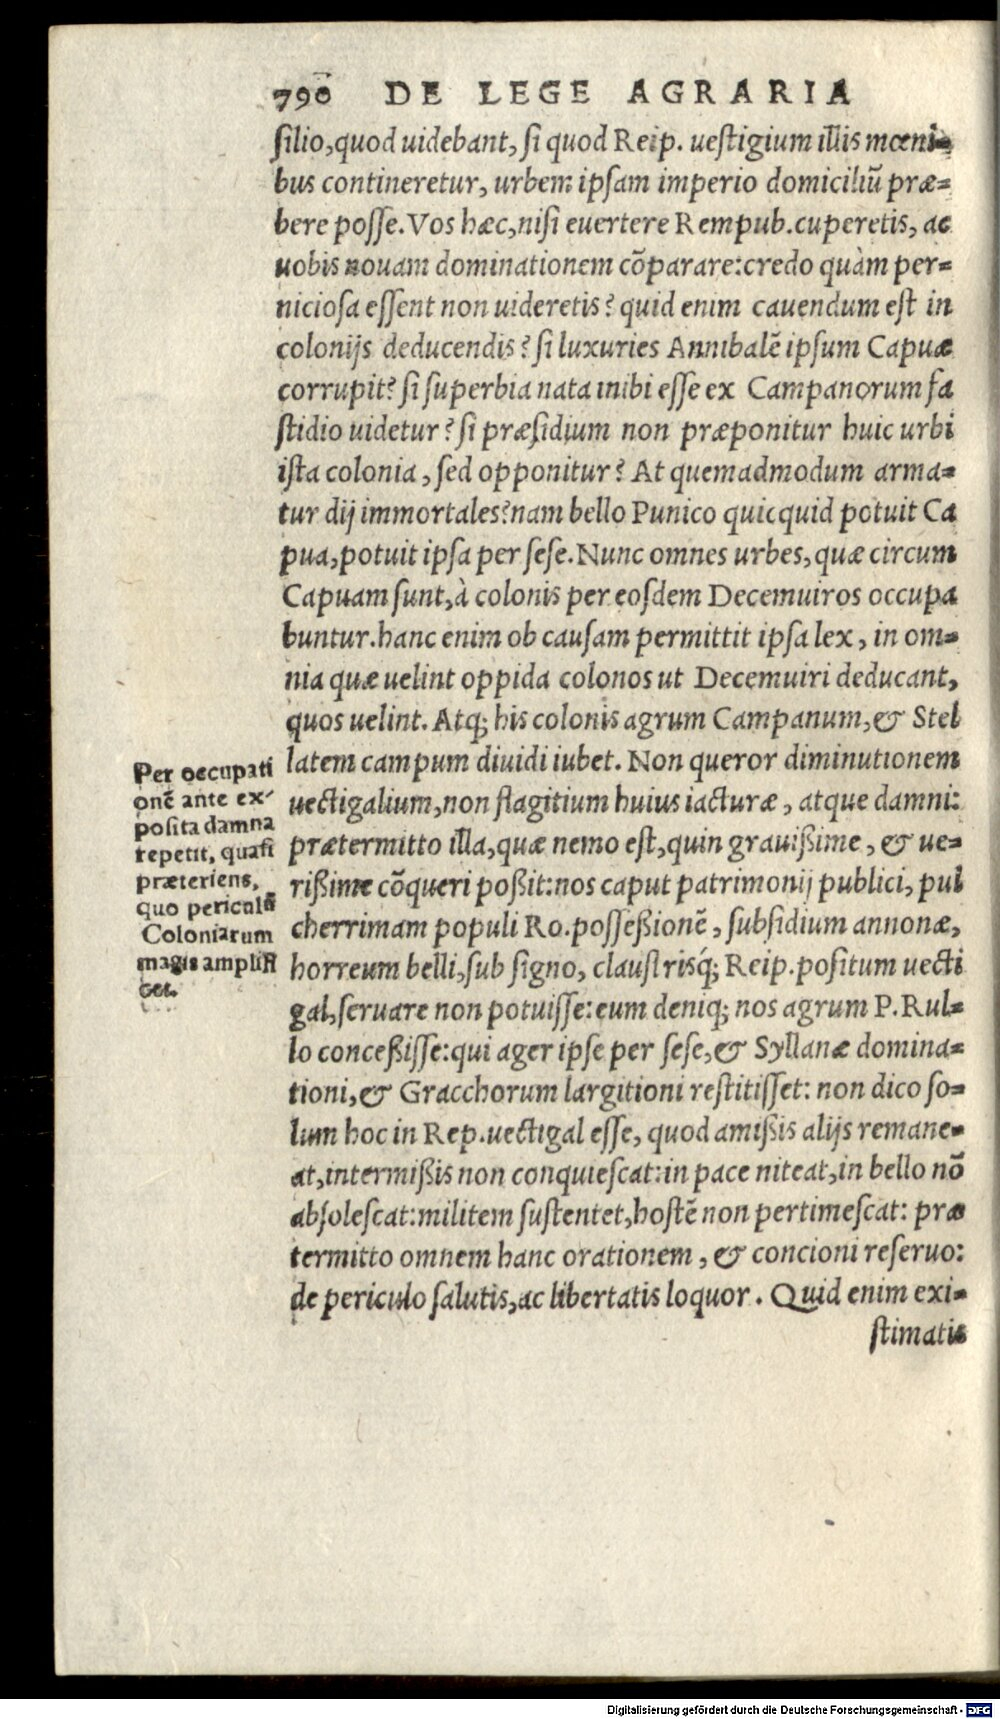 790 DE LEGE AGRARIA
silio, quod uidebant, si quod Reip. uestigium illis mœni-
bus contineretur, urbem ipsam imperio domiciliũ præ-
bere posse. Vos hæc, nisi euertere Rempub. cuperetis, ac
uobis nouam dominationem cõparare: credo quàm per-
niciosa essent non uideretis? quid enim cauendum est in
colonijs deducendis? si luxuries Annibalẽ ipsum Capuæ
corrupit? si superbia nata inibi esse ex Campanorum fa
stidio uidetur? si præsidium non præponitur huic urbi
ista colonia, sed opponitur? At quemadmodum arma-
tur dij immortales? nam bello Punico quicquid potuit Ca
pua, potuit ipsa per sese. Nunc omnes urbes, quæ circum
Capuam sunt, à colonis per eosdem Decemuiros occupa
buntur. hanc enim ob causam permittit ipsa lex, in om-
nia quæ uelint oppida colonos ut Decemuiri deducant,
quos uelint. Atq; his colonis agrum Campanum, & Stel
latem campum diuidi iubet. Non queror diminutionem
uectigalium, non flagitium huius iacturæ, atque damni:
prætermitto illa, quæ nemo est, quin grauißime, & ue-
rißime cõqueri poßit: nos caput patrimonij publici, pul
cherrimam populi Ro. posseßionẽ, subsidium annonæ,
horreum belli, sub signo, claustrisq́; Reip. positum uecti
gal, seruare non potuisse: eum deniq; nos agrum P. Rul-
lo conceßisse: qui ager ipse per sese, & Syllanæ domina-
tioni, & Gracchorum largitioni restitisset: non dico so-
lum hoc in Rep. uectigal esse, quod amißis alijs remane-
at, intermißis non conquiescat: in pace niteat, in bello nõ
absolescat: militem sustentet, hostẽ non pertimescat: præ
termitto omnem hanc orationem, & concioni reseruo:
de periculo salutis, ac libertatis loquor. Quid enim exi-
stimatis
Per occupati
onẽ ante ex-
posita damna
repetit, quasi
præteriens,
quo periculũ
Coloniarum
magis amplifi
cet.
Digitalisierung gefördert durch die Deutsche Forschungsgemeinschaft - DFG